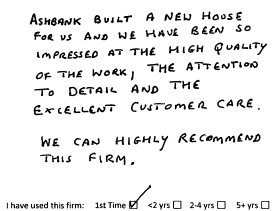 ASHBANK BUILT A NEW HOUSE
FOR US AND WE HAVE BEEN SO
IMPRESSED AT THE HIGH QUALITY
OF THE WORK, THE ATTENTION
TO DETAIL AND THE
EXCELLENT CUSTOMER CARE.
WE CAN HIGHLY RECOMMEND
THIS FIRM.
I have used this firm: 1st Time ☑ <2 yrs ☐ 2-4 yrs ☐ 5+ yrs ☐